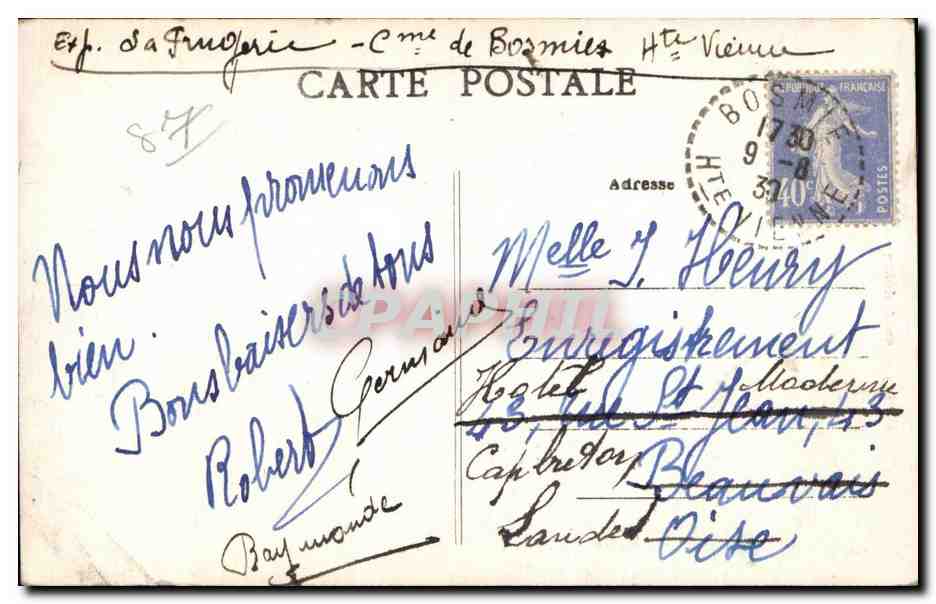 Exp. La Frugerie - Cme de Bosmies Hte Vienne
CARTE POSTALE
87
Nous nous promenons
bien.
Bons baisers de tous
Robert
Germaine
Raymonde
RÉPUBLIQUE FRANÇAISE
40c
POSTES
BOSMIE
17 30
9 -8
HTE VIENNE
Adresse
Melle J. Henry
Enregistrement
Hotel Moderne
43, rue St Jean, 43
Capbreton
Beauvais
Landes
Oise
CPAPHIL